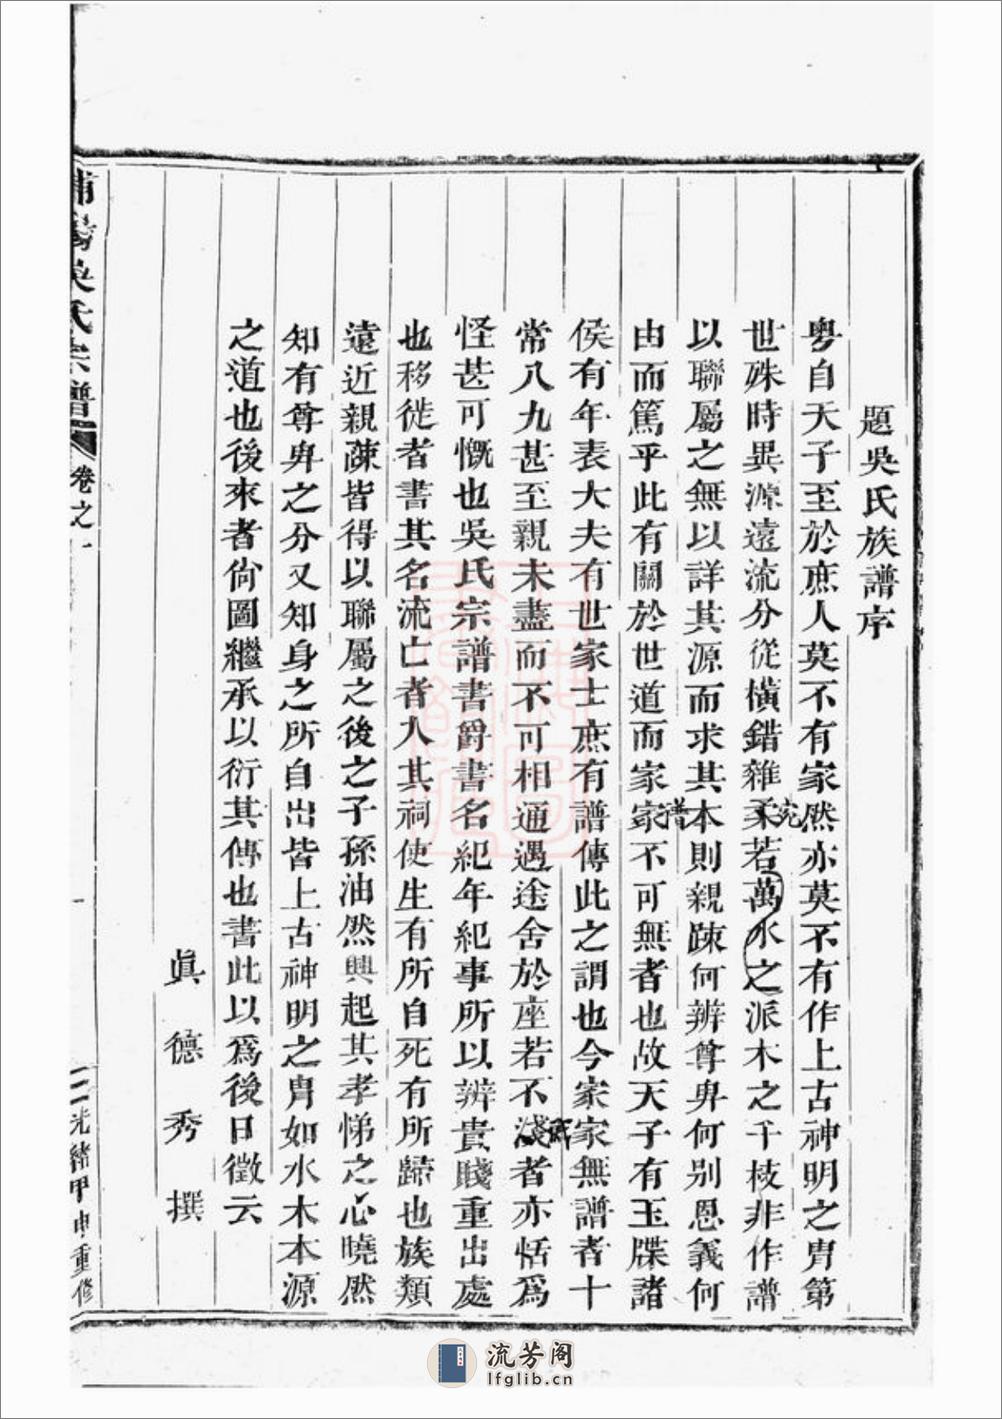 題吳氏族譜序
粵自天子至於庶人莫不有家然亦莫不有作上古神明之冑第
世殊時異源遠流分從橫錯雜柔若萬水之派木之千枝非作譜
完
以聯屬之無以詳其源而求其本則親疎何辨尊卑何別恩義何
譜
由而篤乎此有關於世道而家家不可無者也故天子有玉牒諸
侯有年表大夫有世家士庶有譜傳此之謂也今家家無譜者十
常八九甚至親未盡而不可相通遇途舍於座若不淺者亦恬爲
怪甚可慨也吳氏宗譜書爵書名紀年紀事所以辨貴賤重出處
也移徙者書其名流亡者入其祠使生有所自死有所歸也族類
遠近親疎皆得以聯屬之後之子孫油然興起其孝悌之心曉然
知有尊卑之分又知身之所自出皆上古神明之冑如水木本源
之道也後來者尙圖繼承以衍其傳也書此以爲後日徵云
眞德秀撰
浦陽吳氏宗譜 卷之一 一 光緒甲申重修
流芳阁
lfglib.cn